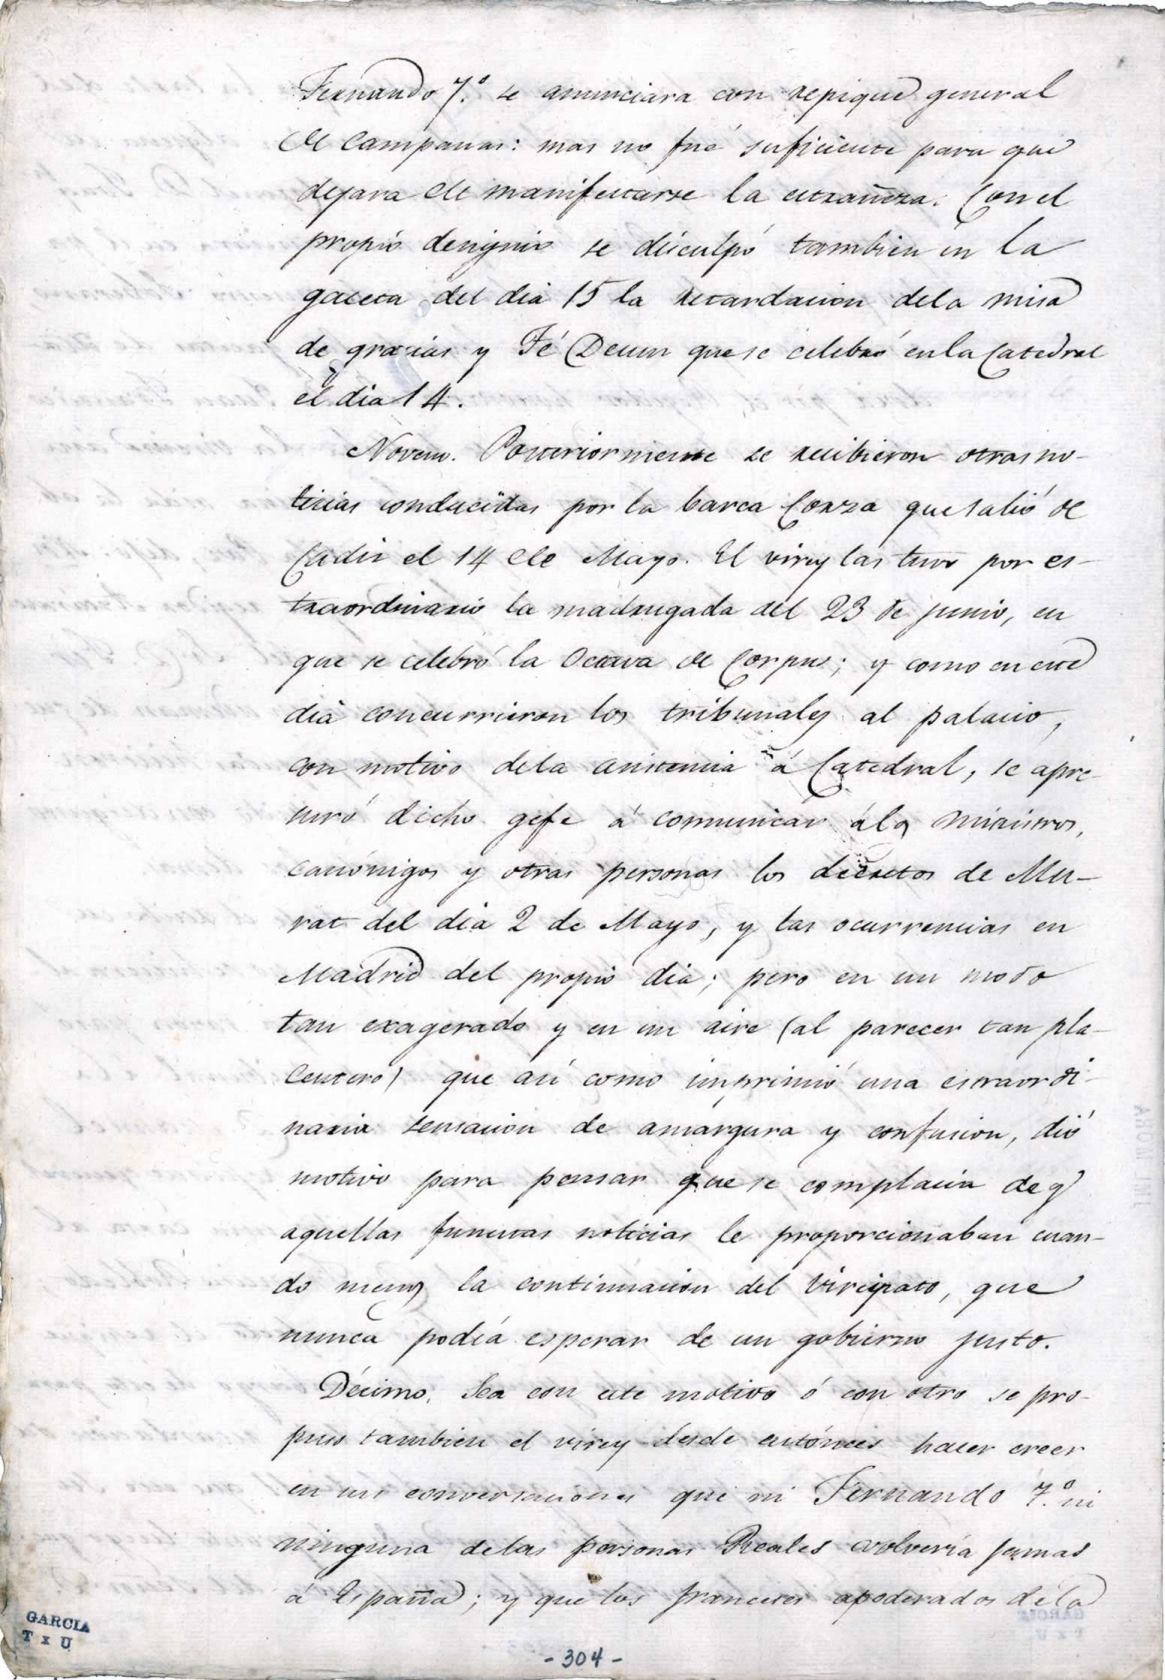 Fernando 7.º se anunciara con repique general
de campanas: mas no fué suficiente para que
dejara de manifestarse la estrañeza. Con el
propio designio se disculpó tambien en la
gaceta del dia 15 la retardacion dela misa
de gracias y Té Deum que se celebró en la Catedral
el dia 14.
Noveno. Posteriormente se recibieron otras no-
ticias conducidas por la barca Corza que salió de
Cadiz el 14 de Mayo. El virey las tuvo por es-
traordinario la madrugada del 23 de junio, en
que se celebró la Octava de Corpus; y como en este
dia concurrieron los tribunales al palacio,
con motivo dela asistencia á Catedral, se apre-
suró dicho gefe á comunicar á los ministros,
canónigos y otras personas los decretos de Mu-
rat del dia 2 de Mayo, y las ocurrencias en
Madrid del propio dia; pero en un modo
tan exagerado y en un aire (al parecer tan pla-
centero) que así como imprimió una estraordi-
naria sensacion de amargura y confusion, dió
motivo para pensar que se complacia de q.
aquellas funestas noticias le proporcionaban cuan-
do menos la continuacion del Vireynato, que
nunca podía esperar de un gobierno justo.
Décimo. Sea con este motivo ó con otro se pro-
puso tambien el virey desde entónces hacer creer
en sus conversaciones que ni Fernando 7.º ni
ninguna delas personas Reales volvería jamas
á España; y que los franceses apoderados dela
GARCIA
T x U
- 304 -